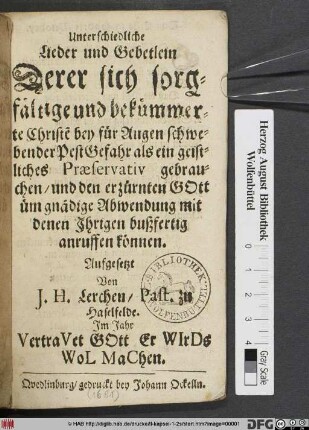 Unterschiedliche
Lieder und Gebetlein
Derer sich sorg-
fältige und bekümmer-
te Christē bey für Augen schwe-
bender PestGefahr als ein geist-
liches Præservativ gebrau-
chen/ und den erzürnten GOtt
üm gnädige Abwendung mit
denen Jhrigen bußfertig
anruffen können.
Aufgesetzt
Von
J. H. Lerchen/ Past. zu
Haselfelde.
Jm Jahr
VertraVet GOtt Er WIrDs
WoL MaChen.
Qvedlinburg/ gedruckt bey Johann Ockelln.
(1681)
BIBLIOTHEK
WOLFENBÜTTEL
Herzog August Bibliothek
Wolfenbüttel
0 1 2 3 4 5 6 7 8
Gray Scale
© HAB http://diglib.hab.de/drucke/tl-kapsel-1-2s/start.htm?image=00001
DFG